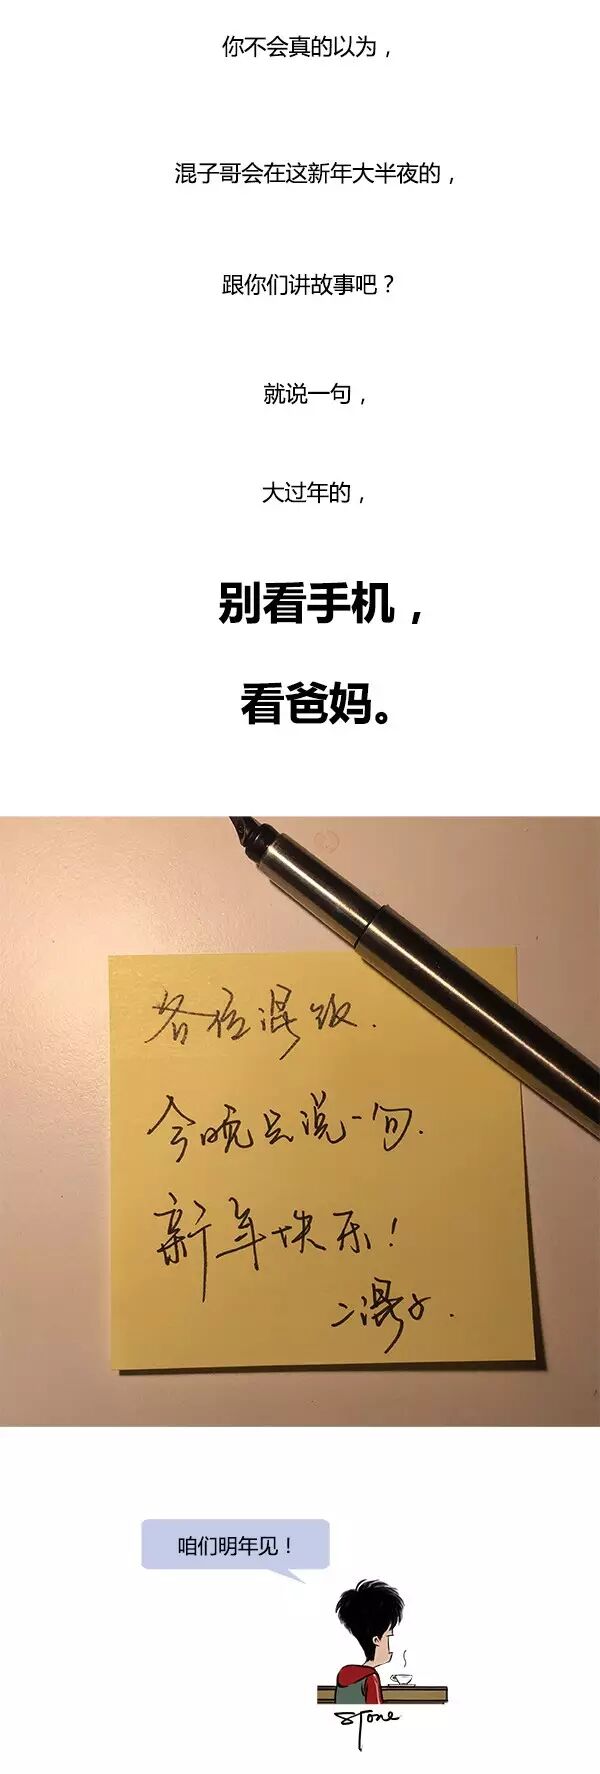 你不会真的以为，
混子哥会在这新年大半夜的，
跟你们讲故事吧？
就说一句，
大过年的，
别看手机，
看爸妈。
各位混饭.
今晚只说一句.
新年快乐！
二混子.
咱们明年见！
Stone